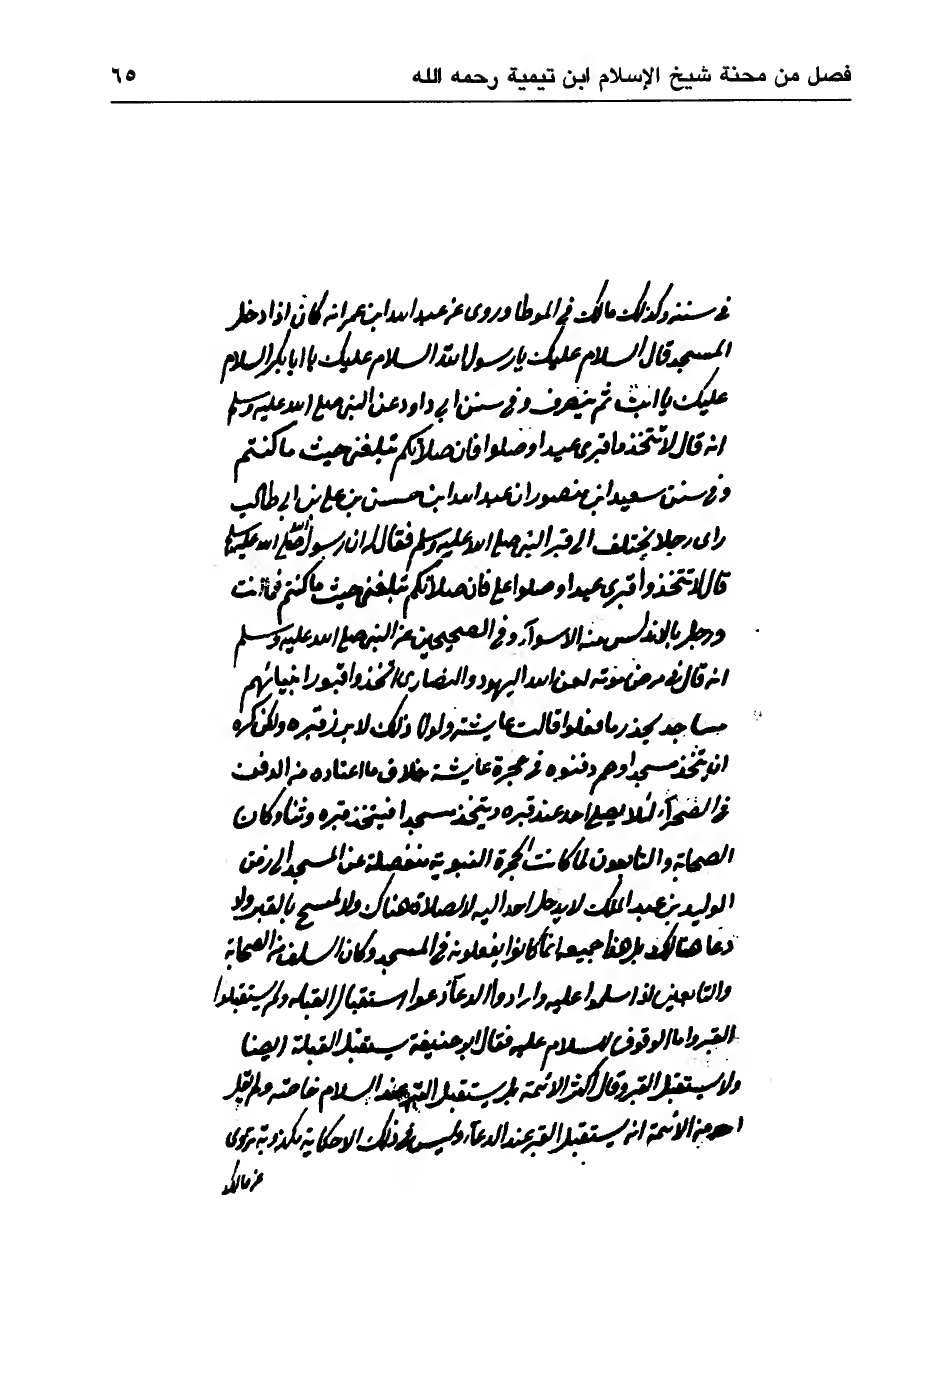 فصل من محنة شيخ الإسلام ابن تيمية رحمه الله ٦٥
في سننه وكذلك مالك في الموطا وروى عن عبد الله ابن عمر انه كان اذا دخل
المسجد قال السلام عليك يا رسول الله السلام عليك يا ابا بكر السلام
عليك يا ابت ثم ينصرف وفي سنن ابي داود عن النبي صلى الله عليه وسلم
انه قال لا تتخذوا قبري عيدا وصلوا فان صلاتكم تبلغني حيث ما كنتم
وفي سنن سعيد ابن منصور ان عبد الله ابن حسن بن علي بن ابي طالب
راى رجلا يختلف الى قبر النبي صلى الله عليه وسلم فقال له ان رسول الله صلى الله عليه وسلم
قال لا تتخذوا قبري عيدا وصلوا علي فان صلاتكم تبلغني حيث ما كنتم فما انت
ورجل بالاندلس منه الا سوآء وفي الصحيحين عن النبي صلى الله عليه وسلم
انه قال في مرض موته لعن الله اليهود والنصارى اتخذوا قبور انبيائهم
مساجد يحذر ما فعلوا قالت عايشة ولولا ذلك لابرز قبره ولكن كره
ان يتخذ مسجدا وهم دفنوه في حجرة عايشة خلاف ما اعتاده من الدفن
في الصحرآء لئلا يصلي احد عند قبره ويتخذ مسجدا فيتخذ قبره وثنا وكان
الصحابة والتابعون لما كانت الحجرة النبوية منفصلة عن المسجد الى زمن
الوليد بن عبد الملك لا يدخل احد اليه لا لصلاة هناك ولا لمسح بالقبر ولا
دعا هنالك بل هذا جميعه انما كانوا يفعلونه في المسجد وكان السلف من الصحابة
والتابعين اذا سلموا عليه وارادوا الدعآء دعوا مستقبل القبلة ولم يستقبلوا
القبر واما الوقوف للسلام عليه فقال ابو حنيفة يستقبل القبلة ايضا
ولا يستقبل القبر وقال اكثر الائمة بل يستقبل القبر عند السلام خاصة ولم يقل
احد من الائمة انه يستقبل القبر عند الدعآء وليس في ذلك الا حكاية مكذوبة تروى
عن مالك